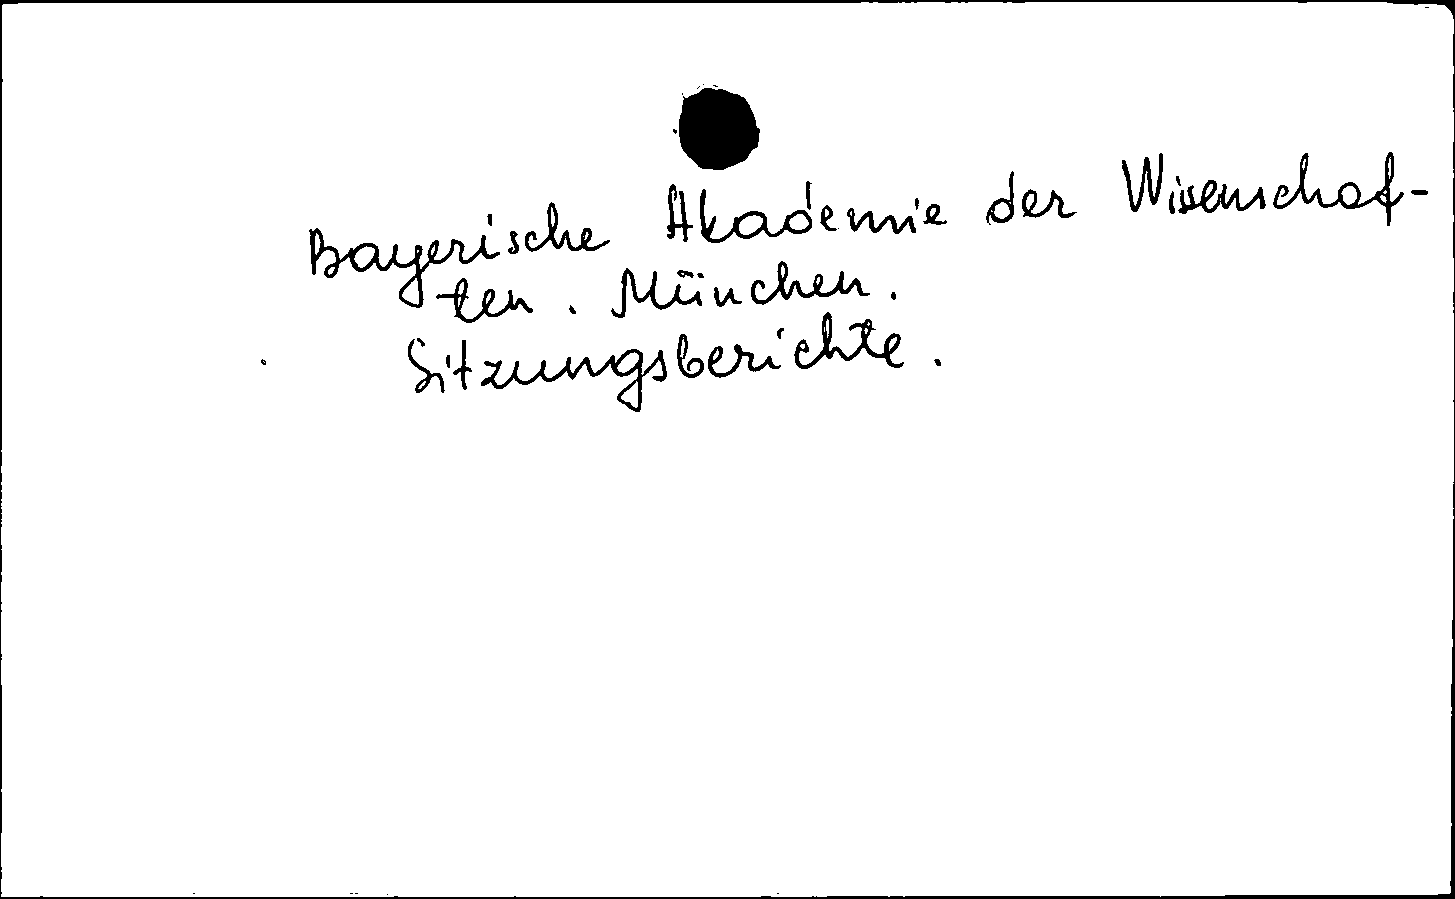 Bayerische Akademie der Wissenschaf-
ten. München.
Sitzungsberichte.